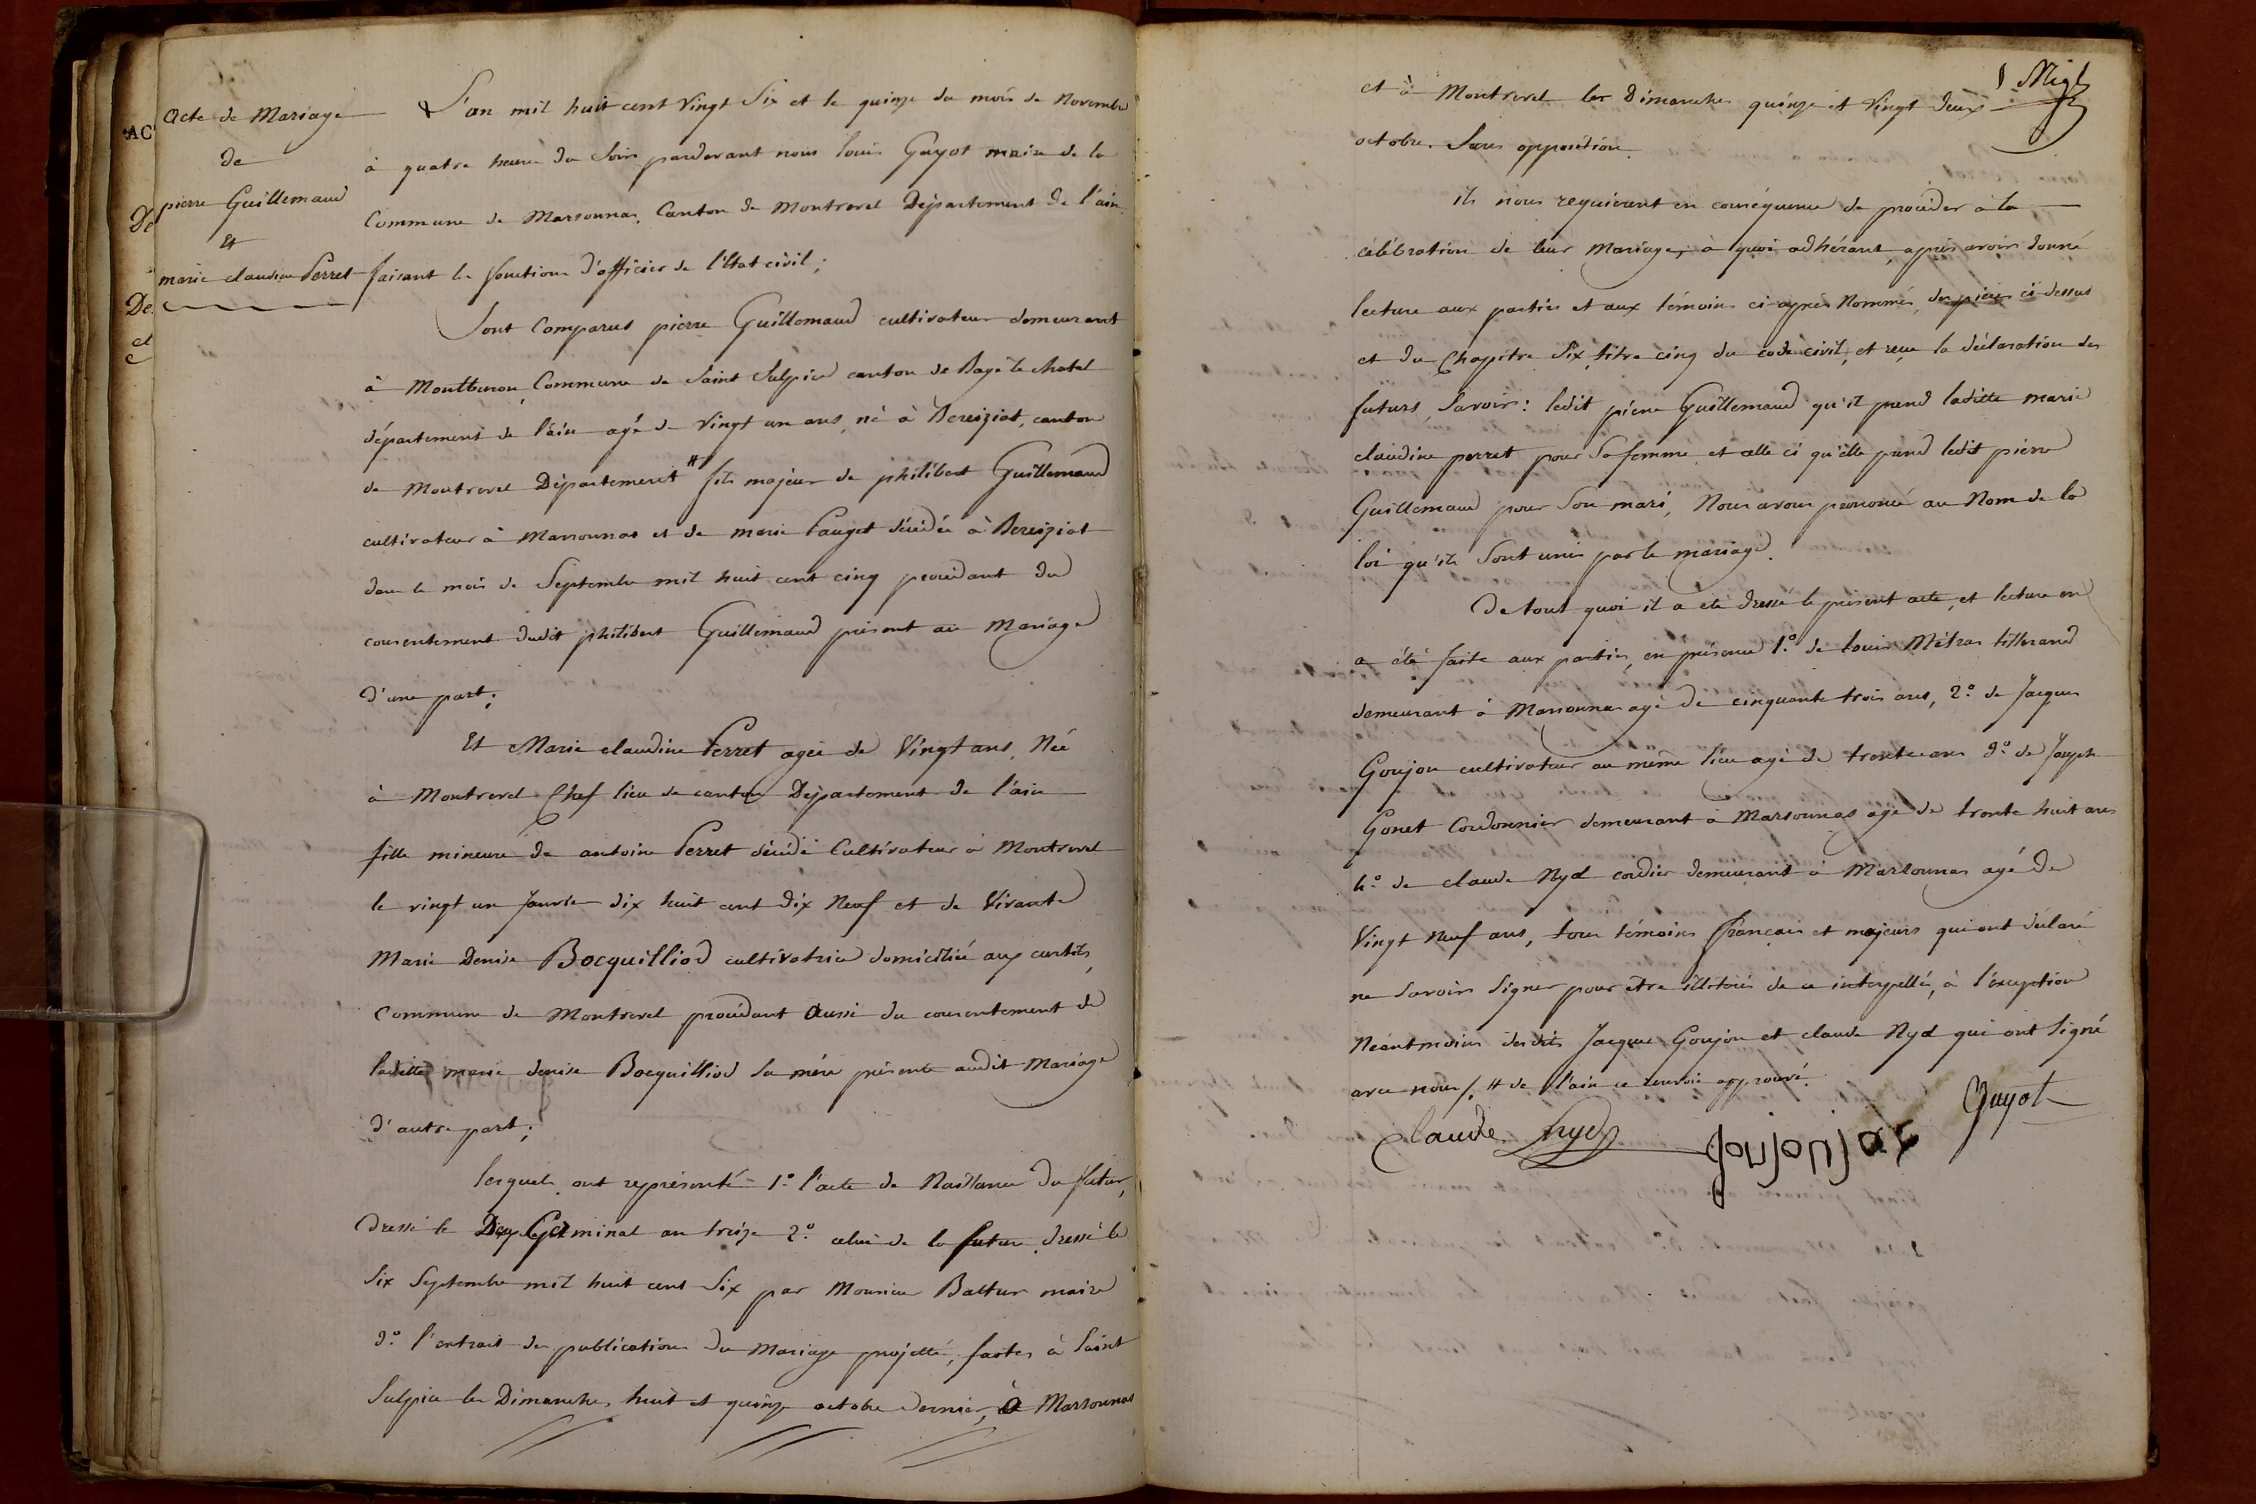 Acte de Mariage
de
pierre Guillemaud
Et
marie claudine Perret
AC
De
De
et
L'an mil huit cent vingt Six et le quinze du mois de Novembre
à quatre heures du Soir pardevant nous louis Guyot maire de la
Commune de Marsonnas, Canton de Montrevel Département de l'ain
faisant les fonctions d'officier de l'Etat civil;
Sont Comparus pierre Guillemaud cultivateur demeurant
à Commune de Saint Sulpice canton de Bagé le chatel
département de l'ain agé de vingt un ans, né à Bereiziat, canton
de Montrevel Département # fils majeur de philibert Guillemaud
cultivateur à Marsonnas et de marie Pauget décédée à Bereiziat
dans le mois de Septembre mil huit cent cinq procédant du
consentement dudit philibert Guillemaud présent au Mariage
d'une part;
Et Marie claudine Perret agée de Vingt ans, Née
à Montrevel Chef lieu de canton Département de l'ain
fille mineure de antoine Perret décédé Cultivateur à Montrevel
le vingt un Janvier dix huit cent dix Neuf et de Vivante
Marie Denise Bocquilliod cultivatrice domiciliée aux curtils,
Commune de Montrevel procédant aussi du consentement de
laditte marie denise Bocquilliod sa mère présente audit Mariage
d'autre part;
lesquels ont représenté 1.º l'acte de Naissance du futur,
dressé le Germinal an treize 2.º celui de la future dressé le
Six Septembre mil huit cent Six par Monsieur maire
3.º l'extrait des publications du Mariage projetté, faites à Saint
Sulpice les Dimanches huit et quinze octobre dernier, à Marsonnas
et à Montrevel les Dimanches quinze et Vingt deux
octobre. Sans opposition.
ils nous requierent en conséquence de procéder à la
célébration de leur Mariage, à quoi adhérant, après avoir donné
lecture aux parties et aux témoins ci-après Nommés, des pièces ci-dessus
et du Chapitre Six, titre cinq du code civil, et reçu la déclaration des
futurs, Savoir: ledit pierre Guillemaud qu'il prend laditte marie
claudine perret pour Sa femme et celle ci qu'elle prend ledit pierre
Guillemaud pour Son mari, Nous avons prononcé au Nom de la
loi qu'ils Sont unis par le mariage.
De tout quoi il a été dressé le présent acte, et lecture en
a été faite aux parties, en présence 1.º de louis Métras tisserand
demeurant à Marsonnas agé de cinquante trois ans, 2.º de Jacques
Goujon cultivateur au même lieu agé de trente ans 3.º de Joseph
Gonet Cordonnier demeurant à Marsonnas agé de trente huit ans
4.º de claude Nyd cordier demeurant à Marsonnas agé de
Vingt Neuf ans, tous témoins français et majeurs qui ont déclaré
ne Savoir Signer pour être illitérés de ce interpellés, à l'exception
Néantmoins desdits Jacques Goujon et claude Nyd qui ont Signé
avec nous /. # de l'ain ce renvoi approuvé.
Claude nyd
goujon jac
Guyot